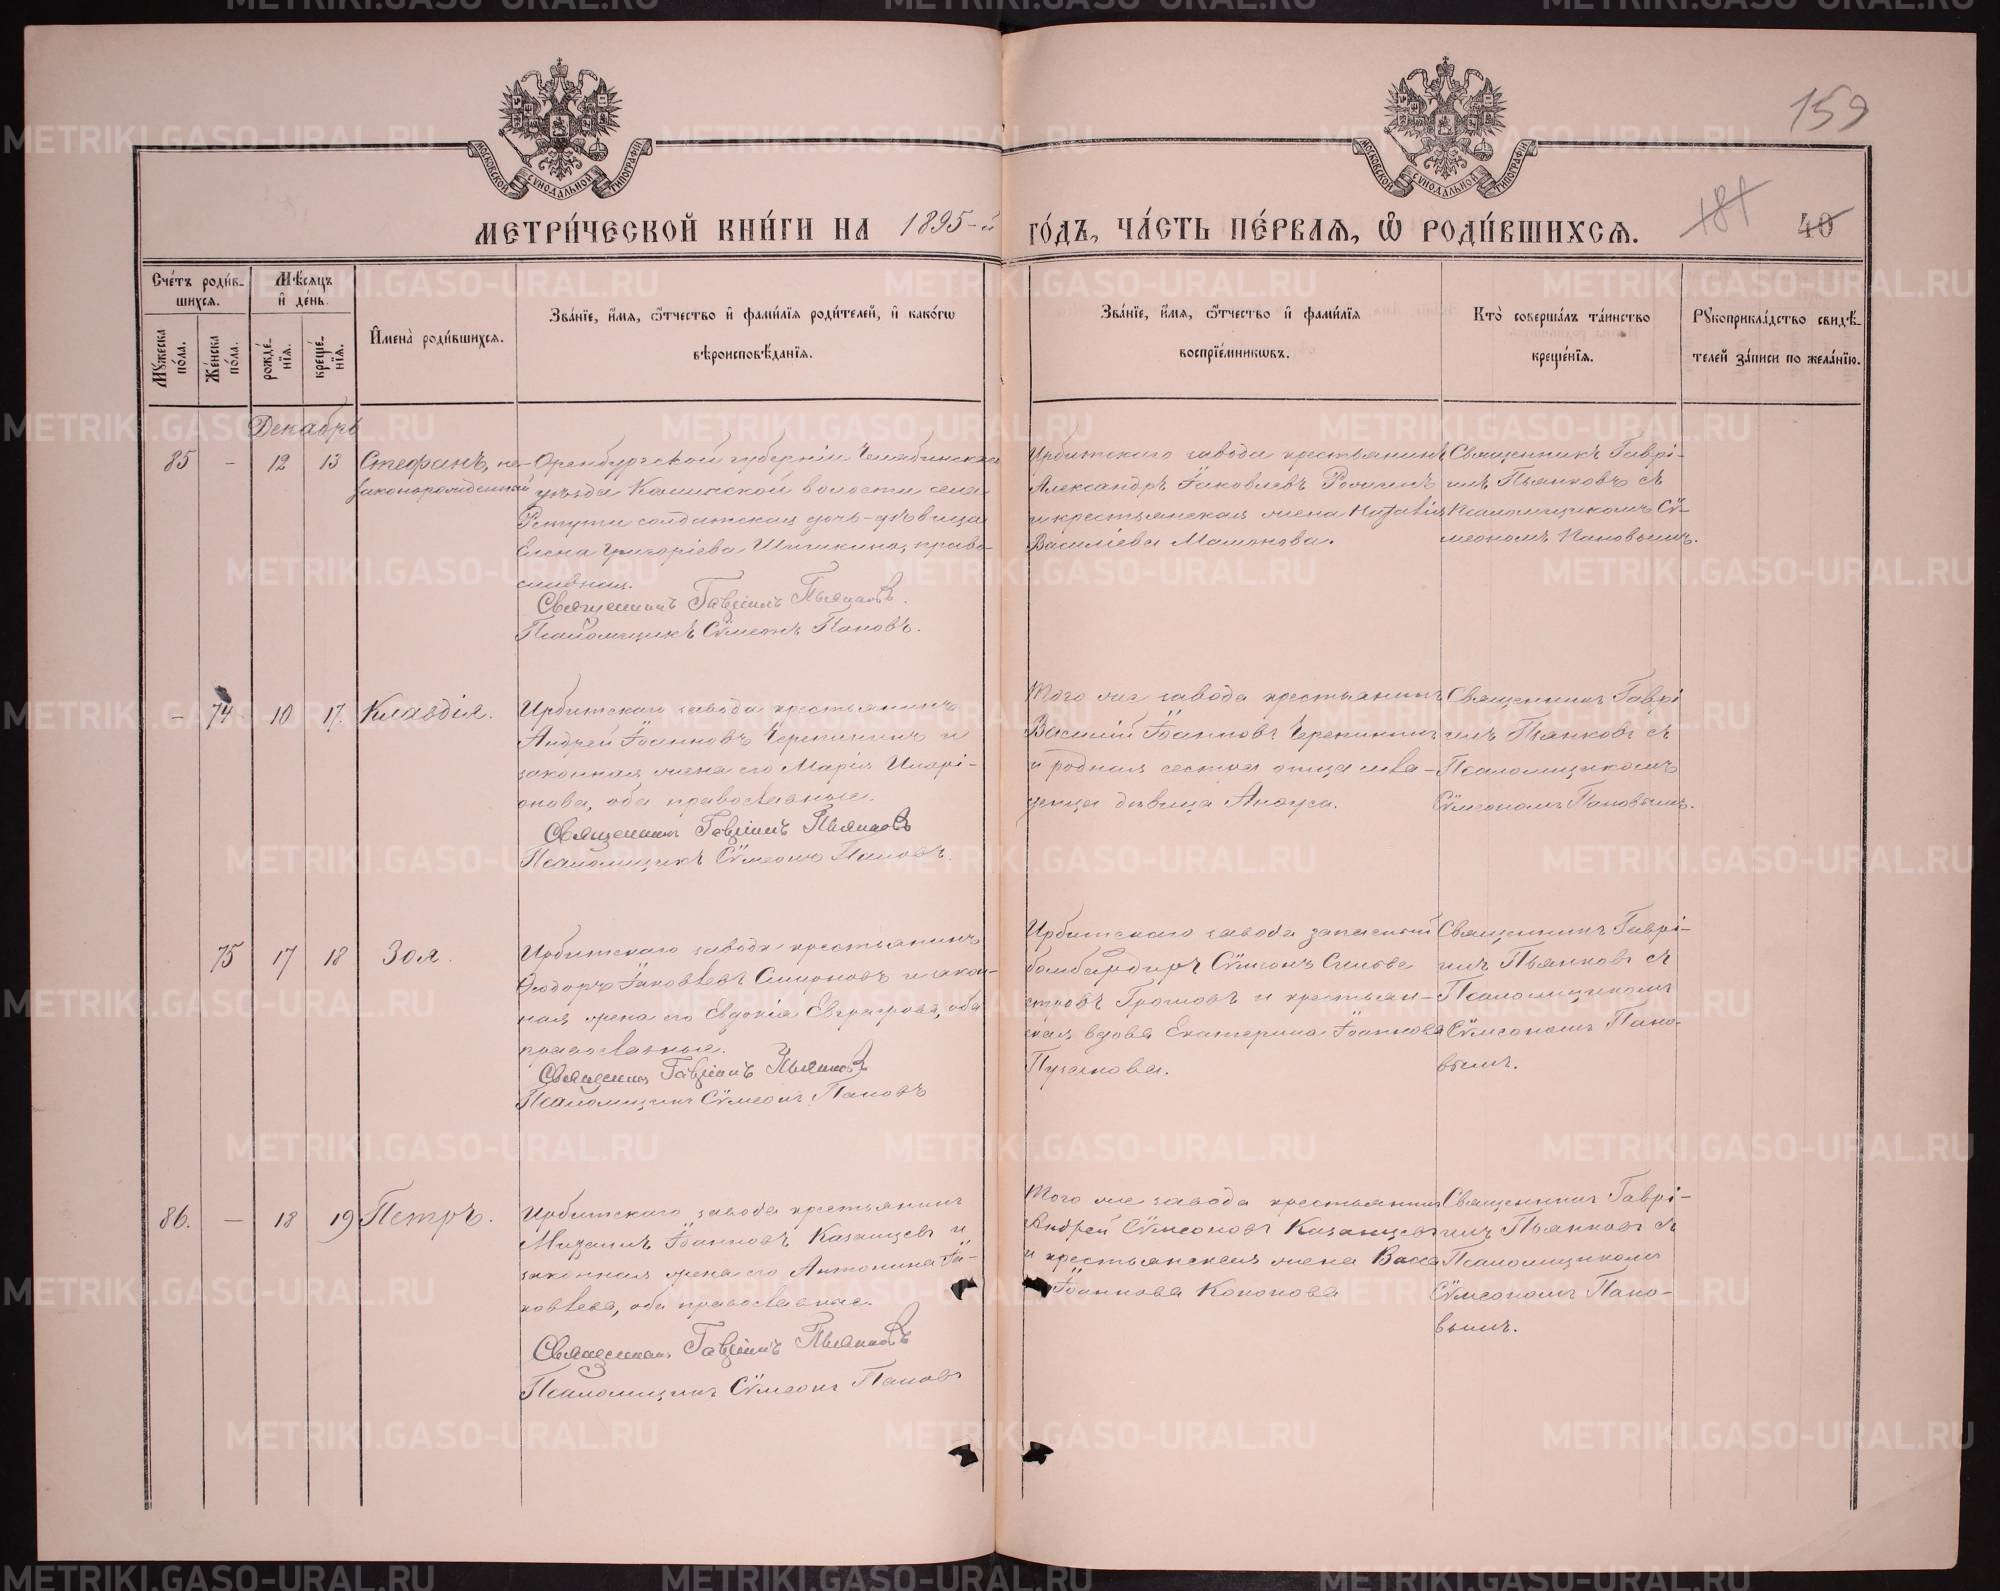 159
МОСКОВСКОЙ СУНОДАЛЬНОЙ ТИПОГРАФІИ
МОСКОВСКОЙ СУНОДАЛЬНОЙ ТИПОГРАФІИ
МЕТРИ́ЧЕСКОЙ КНИ́ГИ НА 1895-й ГО́ДЪ, ЧА́СТЬ ПЕ́РВАЯ, Ѡ РОДИ́ВШИХСЯ.
181 40
Сче́тъ роди́в-
шихся.
Мѣ́сяцъ
и҆ де́нь.
Мꙋ́жеска по́ла.
Же́нска по́ла.
рожде́нїя.
креще́нїя.
И҆мена̀ роди́вшихся.
Зва́нїе, и҆́мя, ѻ҆́тчество и҆ фами́лїя роди́телей, и҆ како́гѡ
вѣроисповѣ́данїя.
Зва́нїе, и҆́мя, ѻ҆́тчество и҆ фами́лїя
воспрїе́мникѡвъ.
Кто̀ соверша́лъ та́инство
креще́нїя.
Рꙋкоприкла́дство свидѣ́-
телей за́писи по жела́нїю.
Декабрь
85 - 12 13 Стефанъ, не-
законорожденный
Оренбургской губерніи Челябинскаго
уѣзда Каминской волости села
солдатская дочь-дѣвица
Елена Григоріева Шишкина, право-
славная.
Священникъ Гавріилъ Пьянковъ.
Псаломщикъ Сѵмеонъ Пановъ.
Ирбитскаго завода крестьянинъ
Александръ Іаковлевъ
и крестьянская жена Наталія
Василіева Мамонова.
Священникъ Гаврі-
илъ Пьянковъ съ
Псаломщикомъ Сѵ-
меономъ Пановымъ.
- 74 10 17. Клавдія.
Ирбитскаго завода крестьянинъ
Андрей Іоанновъ Черепихинъ и
законная жена его Марія Иларі-
онова, оба православные.
Священникъ Гавріилъ Пьянковъ
Псаломщикъ Сѵмеонъ Пановъ.
Того же завода крестьянинъ
Василій Іоанновъ
и родная сестра отца мла-
денца дѣвица
Священникъ Гаврі
илъ Пьянковъ съ
Псаломщикомъ
Сѵмеономъ Пановымъ.
75 17 18 Зоя.
Ирбитскаго завода крестьянинъ
Ѳеодоръ Іаковлевъ Смирновъ и закон-
ная жена его Евдокія Евграфова, оба
православные.
Священникъ Гавріилъ Пьянковъ
Псаломщикъ Сѵмеонъ Пановъ
Ирбитскаго завода запасный
бомбардиръ Сѵмеонъ Сильве
стровъ Громовъ и крестьян-
ская вдова Екатерина Іоаннова
Пушкова.
Священникъ Гаврі-
илъ Пьянковъ съ
Псаломщикомъ
Сѵмеономъ Пано-
вымъ.
86. - 18 19 Петръ.
Ирбитскаго завода крестьянинъ
Михаилъ Іоанновъ Казанцевъ и
законная жена его Антонина Іа-
ковлева, оба православные.
Священникъ Гавріилъ Пьянковъ
Псаломщикъ Сѵмеонъ Пановъ
Того же завода крестьянинъ
Андрей Сѵмеоновъ Казанцевъ
и крестьянская жена Васса
Іоаннова Кононова
Священникъ Гаврі-
илъ Пьянковъ съ
Псаломщикомъ
Сѵмеономъ Пано-
вымъ.
METRIKI.GASO-URAL.RU